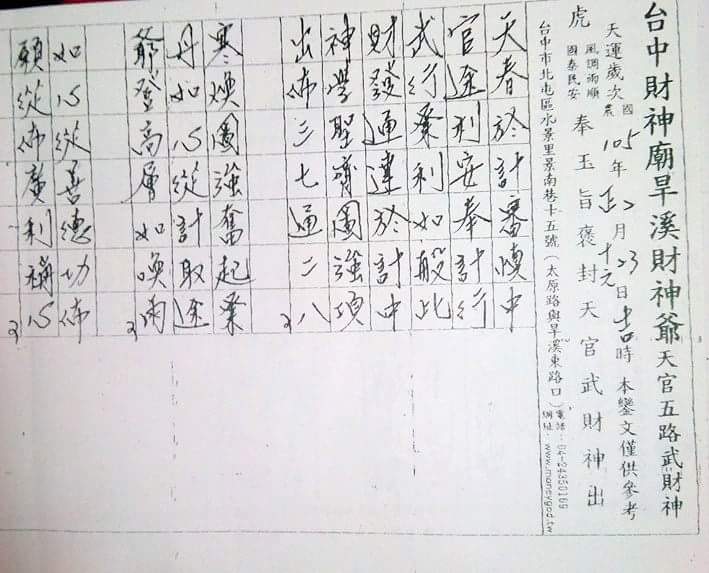 台中財神廟旱溪財神爺天官五路武財神
天運歲次國農105年正2月23日吉時本鑾文僅供參考
虎風調雨順國泰民安奉玉旨褒封天官武財神出
台中市北屯區水景里景南巷十五號(太原路與旱溪東路口)電話:04-24350169
網址:www.moneygod.tw
天春於計審慎中
官途利安奉計行
武行利如般此
財發通達於計中
神聖圖強項
出佈三七通二八
寒煥圖強奮起
丹如心從計取途
爺登高層如喚雨
如心從善德功佈
願從佈廣利心